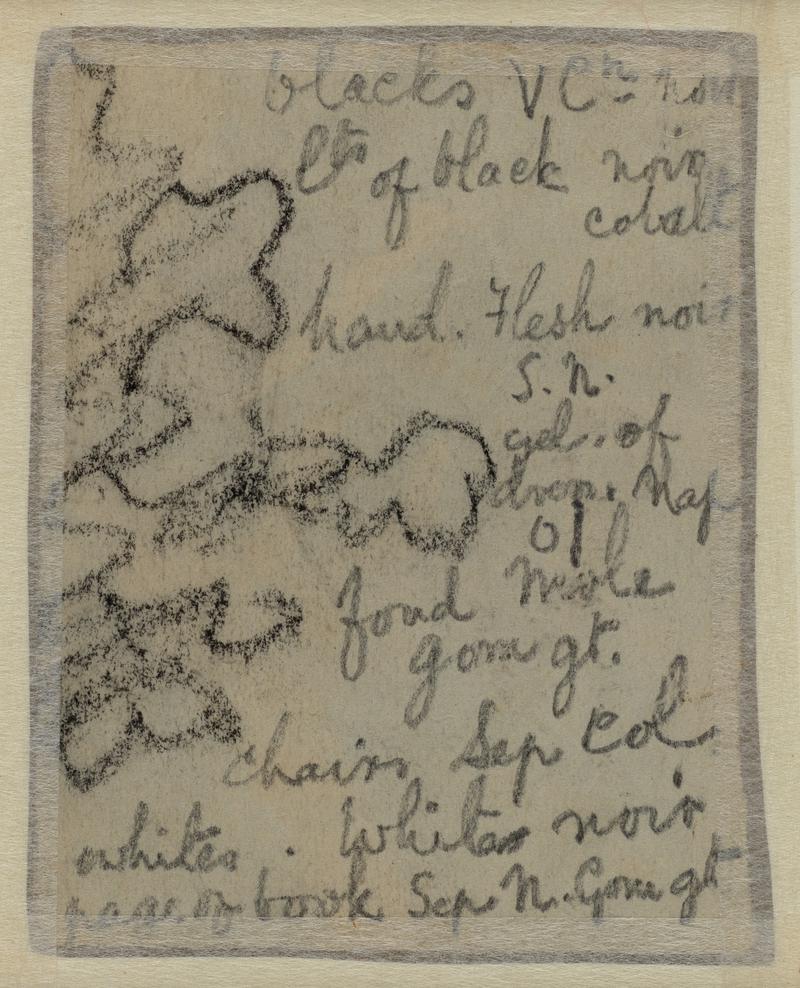 blacks VCn noir
lts of black noir
cobalt
hand. Flesh noir
S. N.
yel. of
Nap
fond
gom gt.
chairs Sep Col
whites . Whites noir
page of book Sep N. Gom gt